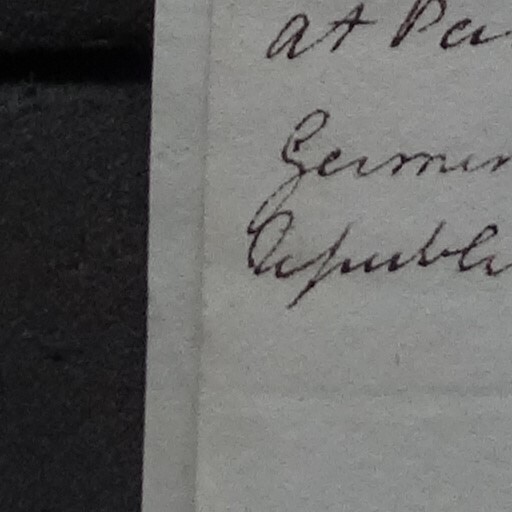 at Pa
German
Republi